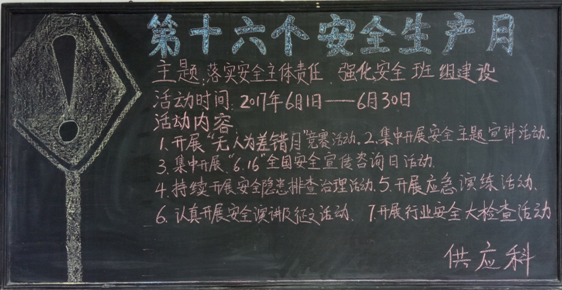 第十六个安全生产月
主题:落实安全主体责任 强化安全班组建设
活动时间:2017年6月1日——6月30日
活动内容:
1.开展"无人为差错月"竞赛活动.2.集中开展安全主题宣讲活动.
3.集中开展"6.16"全国安全宣传咨询日活动.
4.持续开展安全隐患排查治理活动.5.开展应急演练活动.
6.认真开展安全演讲及征文活动. 7.开展行业安全大检查活动
供应科